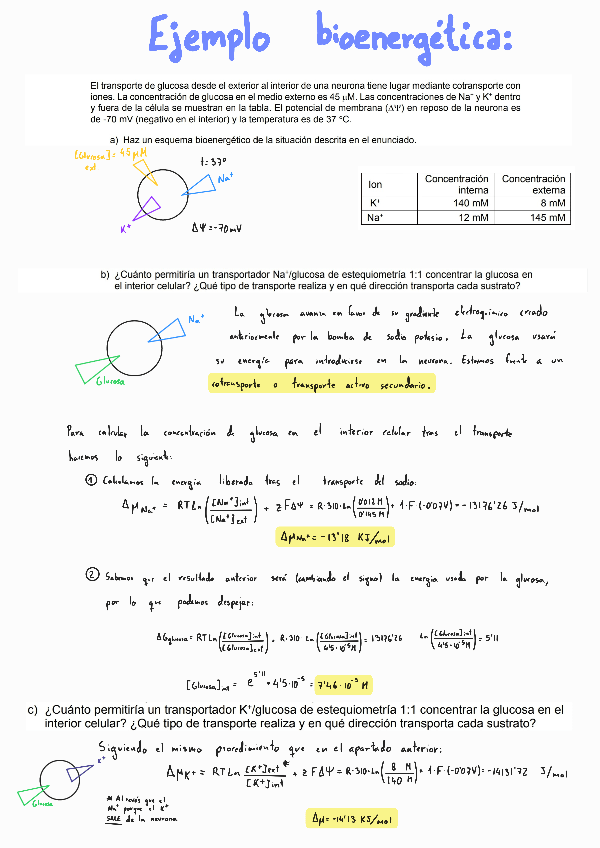 Ejemplo bioenergética:
El transporte de glucosa desde el exterior al interior de una neurona tiene lugar mediante cotransporte con
iones. La concentración de glucosa en el medio externo es 45 μM. Las concentraciones de Na⁺ y K⁺ dentro
y fuera de la célula se muestran en la tabla. El potencial de membrana (ΔΨ) en reposo de la neurona es
de -70 mV (negativo en el interior) y la temperatura es de 37 °C.
a) Haz un esquema bioenergético de la situación descrita en el enunciado.
[Glucosa]ext = 45 μM
t=37º
Na⁺
K⁺
ΔΨ=-70mV
Ion Concentración interna Concentración externa
K⁺ 140 mM 8 mM
Na⁺ 12 mM 145 mM
b) ¿Cuánto permitiría un transportador Na⁺/glucosa de estequiometría 1:1 concentrar la glucosa en
el interior celular? ¿Qué tipo de transporte realiza y en qué dirección transporta cada sustrato?
Na⁺
Glucosa
La glucosa avanza en favor de su gradiente electroquímico creado
anteriormente por la bomba de sodio potasio. La glucosa usará
su energía para introducirse en la neurona. Estamos frente a un
cotransporte o transporte activo secundario.
Para calcular la concentración de glucosa en el interior celular tras el transporte
haremos lo siguiente:
① Calculamos la energía liberada tras el transporte del sodio:
Δμ Na⁺ = RTLn([Na⁺]int/[Na⁺]ext) + zFΔΨ = R·310·Ln(0'012M/0'145M) + 1·F·(-0'07V) = -13176'26 J/mol
Δμ Na⁺ = -13'18 KJ/mol
② Sabemos que el resultado anterior será (cambiando el signo) la energía usada por la glucosa,
por lo que podemos despejar:
ΔGglucosa = RTLn([Glucosa]int/[Glucosa]ext) = R·310 Ln([Glucosa]int/4'5·10⁻⁵M) = 13176'26 Ln([Glucosa]int/4'5·10⁻⁵M) = 5'11
[Glucosa]int = e^5'11 · 4'5·10⁻⁵ = 7'46·10⁻³ M
c) ¿Cuánto permitiría un transportador K⁺/glucosa de estequiometría 1:1 concentrar la glucosa en el
interior celular? ¿Qué tipo de transporte realiza y en qué dirección transporta cada sustrato?
Siguiendo el mismo procedimiento que en el apartado anterior:
K⁺
Glucosa
Δμ K⁺ = RTLn([K⁺]ext*/[K⁺]int) + zFΔΨ = R·310·Ln(8 M/140 M) + 1·F·(-0'07V) = -14131'72 J/mol
* Al revés que el
Na⁺ porque el K⁺
SALE de la neurona
Δμ = -14'13 KJ/mol